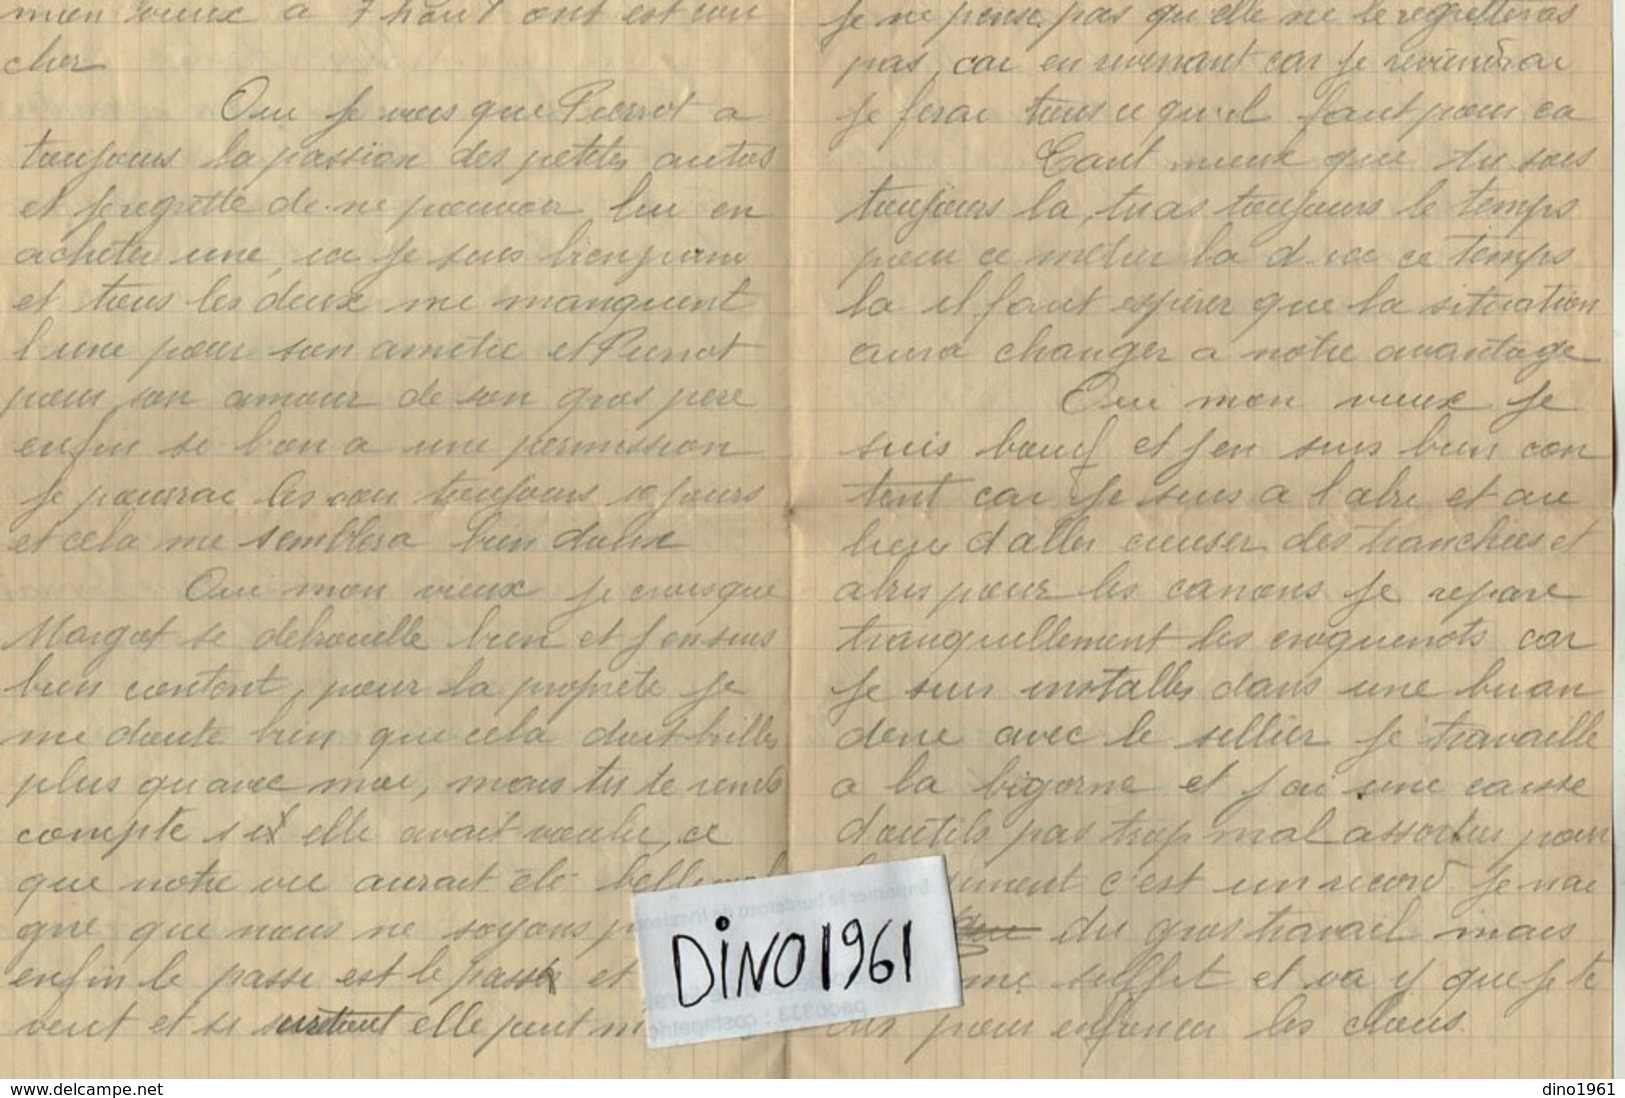 mon vieux a 7 heur ont est cou
cher
Oui je vois que Pierrot a
toujours la passion des petites autos
et je regrette de ne pouvoir lui en
acheter une, ici je suis bien
et tous les deux me manquent
l une pour son amitie et Pierrot
pour son amour de son gros pere
enfin si l'on a une permission
je pourrai les voir toujours 10 jours
et cela me semblera bien doux
Oui mon vieux je crois que
Margot se debrouille bien et j en suis
bien content, pour la proprete je
me doute bien que cela doit briller
plus qu avec moi, mais tu te rends
compte si elle avait voulu, ce
que notre vie aurait été belle
que nous ne soyons
enfin le passe est le passé et
veut et si surtout elle peut
je ne pense pas qu'elle ne le regretteras
pas, car en revenant car je reviendrai
je ferai tous ce qu'il faut pour ca
Tant mieux que tu sois
toujours la, tu as toujours le temps
pour ce metier la d ici ce temps
la il faut esperer que la situation
aura changer a notre avantage
Oui mon vieux je
suis boeuf et j en suis bien con
tent car je suis a l abri et au
lieu d aller creuser des tranchées et
abris pour les canons je repare
tranquillement les croquenots car
je suis installer dans une buan
derie avec le sellier je travaille
a la bigorne et j ai une caisse
d outils pas trop mal assortus pour
c'est un record je n ai
du gros travail mais
me suffit et va y que je te
pour enfoncer les clous.
DiNO1961
delcampe.net
dino1961